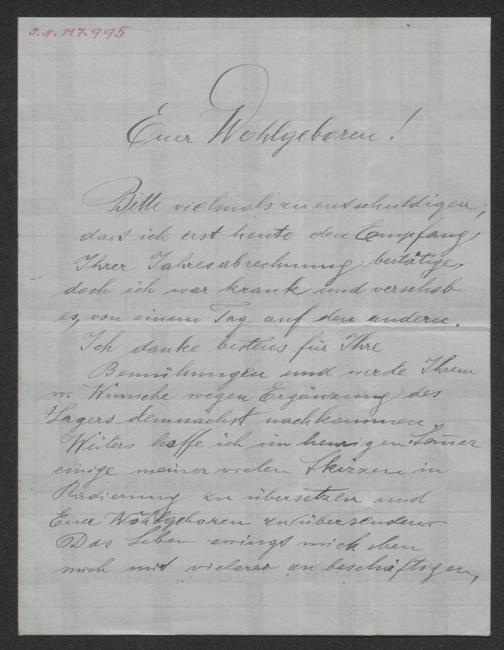 I.N. 117.995
Euer Wohlgeboren!
Bitte vielmals zu entschuldigen,
dass ich erst heute den Empfang
Ihrer Jahresabrechnung bestätige,
doch ich war krank und verschob
es, von einem Tag auf den andern.
Ich danke bestens für Ihre
Bemühungen und werde Ihrem
w. Wunsche wegen Ergänzung des
Lagers demnächst nachkommen.
Weiters hoffe ich im heurigen Sommer
einige meiner vielen Skizzen in
Radierung zu übersetzen und
Euer Wohlgeboren zu übersenden.
Das Leben zwingt mich eben
mich mit vielerer zu beschäftigen,